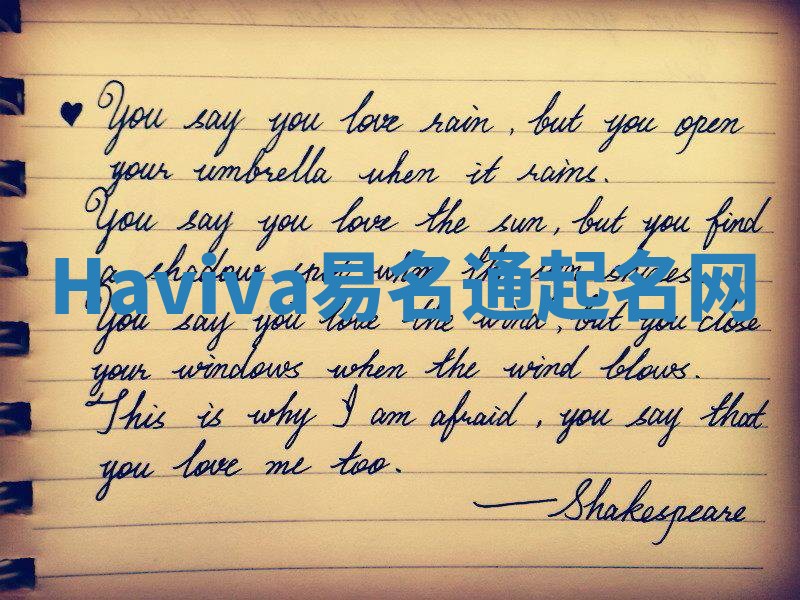 ♥ You say you love rain, but you open
your umbrella when it rains.
You say you love the sun, but you find
a shadow spot when the sun shines
Haviva易名通起名网
You say you love the wind, but you close
your windows when the wind blows.
This is why I am afraid, you say that
you love me too.
— Shakespeare